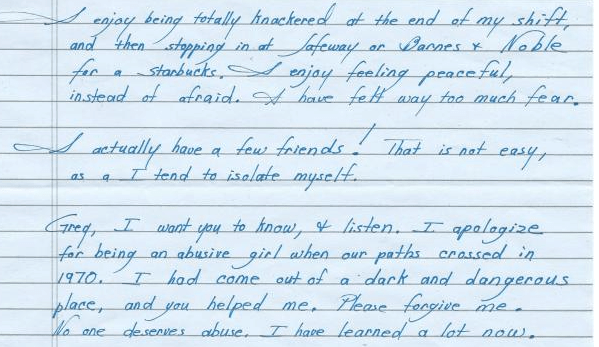 I enjoy being totally knackered at the end of my shift,
and then stopping in at Safeway or Barnes & Noble
for a starbucks. I enjoy feeling peaceful,
instead of afraid. I have felt way too much fear.
I actually have a few friends! That is not easy,
as a I tend to isolate myself.
Greg, I want you to know, & listen. I apologize
for being an abusive girl when our paths crossed in
1970. I had come out of a dark and dangerous
place, and you helped me. Please forgive me.
No one deserves abuse. I have learned a lot now.